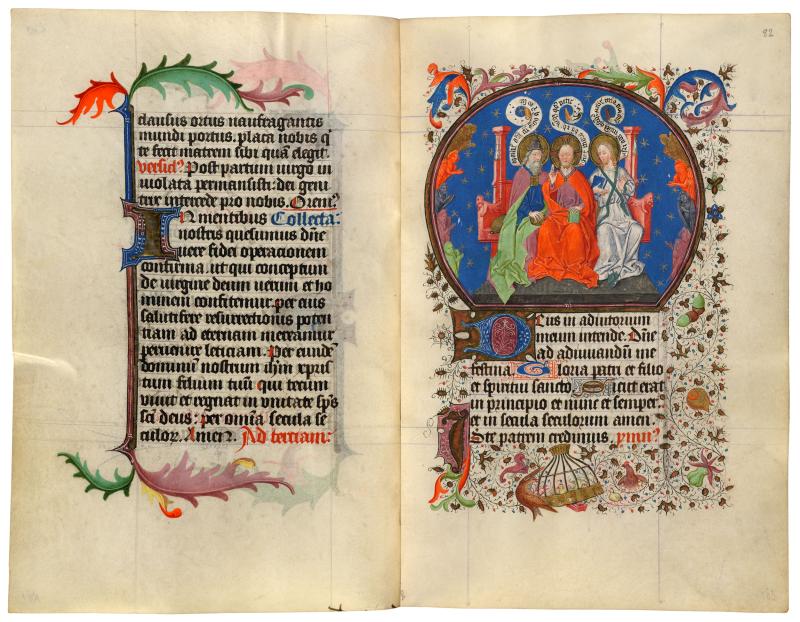 clausus ortus naufragantis
mundi portus. placa nobis q̄
te fecit matrem sibi quā elegit.
versic̄? Post partum uirgo in
uiolata permansisti: dei geni
trix intercede pro nobis. Orem?
IN mentibus Collecta:
nostris quesumus dn̄e
uere fidei operacionem
confirma. ut qui conceptum
de uirgine deum uerum et ho
minem confitemur. per eius
salutifere resurrectionis poten
tiam ad eternam mereamur
peruenire leticiam. Per eundē
dominū nostrum ih̄m xpris
tum filium tuū qui tecum
uiuit et regnat in unitate sp̄s
sc̄i deus: per omīa secula se
culor. Amen. Ad terciam:
82
DEus in adiutorium
meum intende. Dn̄e
ad adiuuandū me
festina Gloria patri et filio
et spiritui sancto Sicut erat
in principio et nunc et semper
et in secula seculorum amen.
Te patrem credimus. ymn?